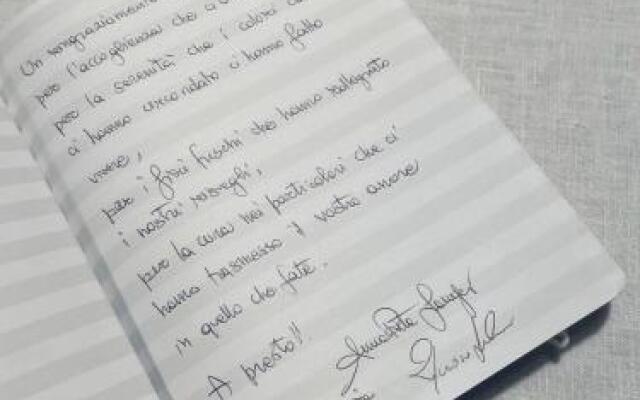 Un ringraziamento
per l'accoglienza che ci
per la serenità che i colori
ci hanno circondato ci hanno fatto
vivere,
per i fiori freschi che hanno rallegrato
i nostri risvegli,
per la cura nei particolari che ci
hanno trasmesso il vostro amore
in quello che fate.
A presto!!